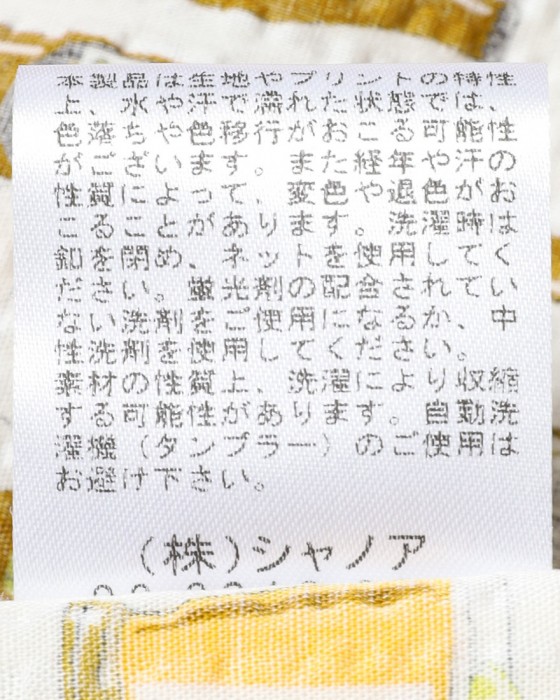 本製品は生地やプリントの特性
上、水や汗で濡れた状態では、
色落ちや色移行がおこる可能性
がございます。また経年や汗の
性質によって、変色や退色がお
こることがあります。洗濯時は
釦を閉め、ネットを使用してく
ださい。蛍光剤の配合されてい
ない洗剤をご使用になるか、中
性洗剤を使用してください。
素材の性質上、洗濯により収縮
する可能性があります。自動洗
濯機（タンブラー）のご使用は
お避け下さい。
(株)シャノア